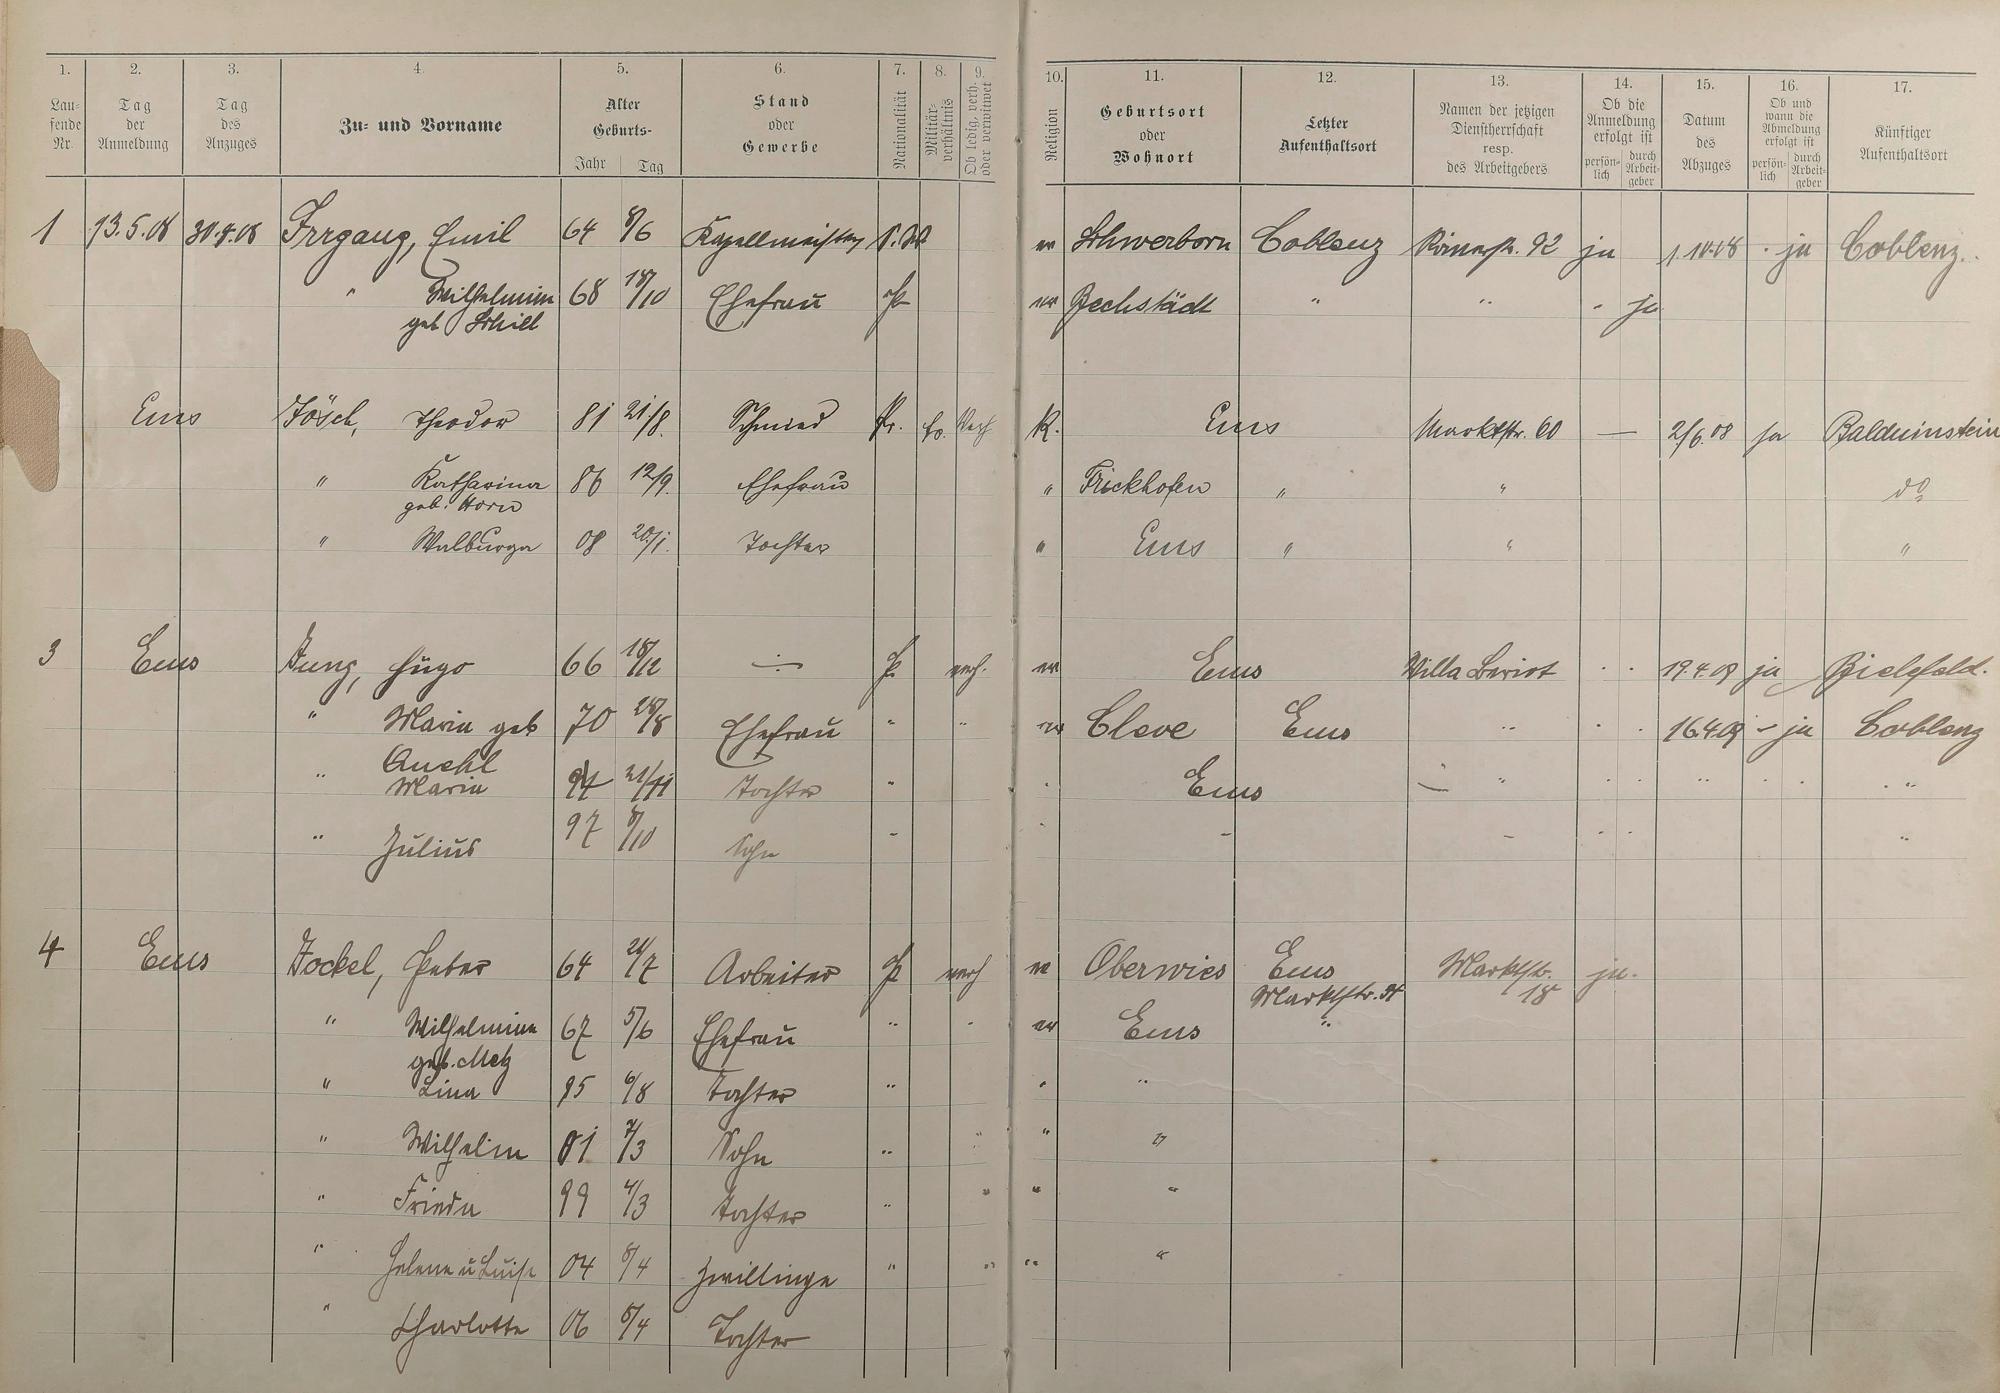 1. 2. 3. 4. 5. 6. 7. 8. 9. 10. 11. 12. 13. 14. 15. 16. 17.
Lau-
fende
Nr.
Tag
der
Anmeldung
Tag
des
Anzuges
Zu- und Vorname
Alter
Geburts-
Jahr Tag
Stand
oder
Gewerbe
Nationalität
Militär-
verhältnis
Ob ledig, verh.
oder verwitwet
Religion
Geburtsort
oder
Wohnort
Letzter
Aufenthaltsort
Namen der jetzigen
Dienstherrschaft
resp.
des Arbeitgebers
Ob die
Anmeldung
erfolgt ist
persön-
lich
durch
Arbeit-
geber
Datum
des
Abzuges
Ob und
wann die
Abmeldung
erfolgt ist
persön-
lich
durch
Arbeit-
geber
Künftiger
Aufenthaltsort
1 13.5.08 Irrgang, Emil 64 8/6 Kapellmeister ev Schwerborn Coblenz Römerstr. 92 ja 1.10.08 ja Coblenz.
" Wilhelmine 68 18/10 Ehefrau P ev Bechstädt " " - ja
geb Schill
Ems Jösch, Theodor 81 21/8. Schmied Pr. Verh K. Ems Marktstr. 60 — 2/6.08 ja Balduinstein
" Katharina 86 12/9. Ehefrau " Frickhofen " " do
geb. Horn
" Walburga 08 20/1. Tochter " Ems " " "
3 Ems Jung, Hugo 66 18/12 P verh. ev Ems Villa Beriot 19.4.09 ja Bielefeld.
" Maria geb 70 28/8 Ehefrau " " ev Cleve Ems " 16.4.09 - ja Coblenz
" Maria 94 21/11 Tochter " Ems " " "
" Julius 97 8/10 Sohn - - - "
4 Ems Jockel, Peter 64 21/7 Arbeiter P verh ev Oberwies Ems Marktstr. ja.
Marktstr. 18
" Wilhelmine 67 5/6 Ehefrau " ev Ems "
geb. Metz
" Lina 95 6/8 Tochter " "
" Wilhelm 01 7/3 Sohn " " "
" Frieda 99 4/3 Tochter " " " "
" Helene u Luise 04 8/4 Zwillinge " " " "
" Charlotte 06 8/4 Tochter